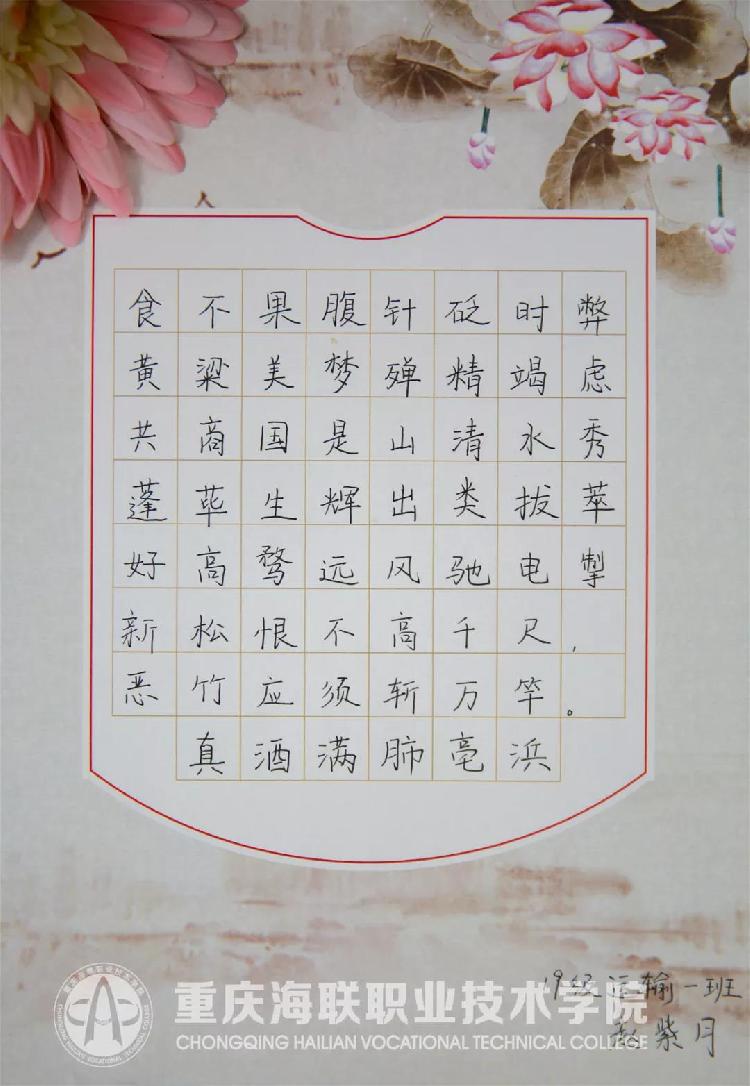 食不果腹针砭时弊
黄粱美梦殚精竭虑
共商国是山清水秀
蓬荜生辉出类拔萃
好高骛远风驰电掣
新松恨不高千尺，
恶竹应须斩万竿。
真酒满肺亳浜
19级运输一班
赵紫月
重庆海联职业技术学院
CHONGQING HAILIAN VOCATIONAL TECHNICAL COLLEGE